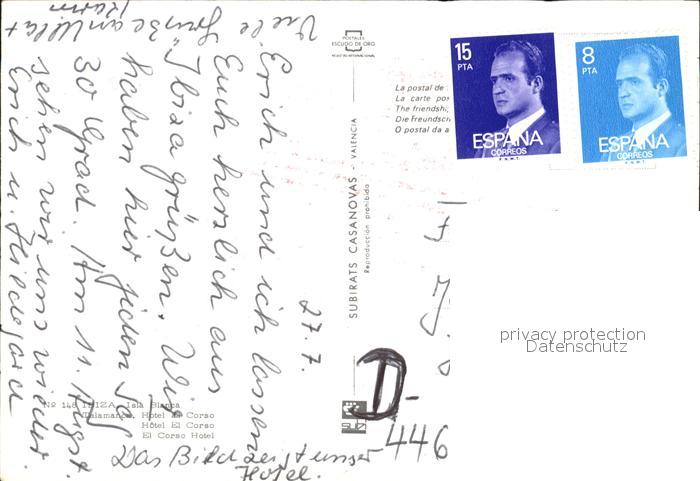 27.7.
Erich und ich lassen
Euch herzlich aus
"Ibiza grüßen. Wir
haben hier jeden Tag
30 Grad. Am 11. August.
sehen wir uns wieder.
Erich u. Hildegard
Viele Grüße an Ulla +
Karin
Das Bild zeigt unser
Hotel.
Nº 148 IBIZA. Isla Blanca
Talamanca. Hotel El Corso
Hôtel El Corso
El Corso Hotel
POSTALES
ESCUDO DE ORO
REGISTRO INTERNACIONAL
SUBIRATS CASANOVAS - VALENCIA
Reproducción prohibida
La postal de
La carte pos
The friendshi
Die Freundsch
O postal da a
15
PTA
ESPAÑA
CORREOS
F.N.M.T.
8
PTA
ESPAÑA
CORREOS
F.N.M.T.
D-
446
privacy protection
Datenschutz